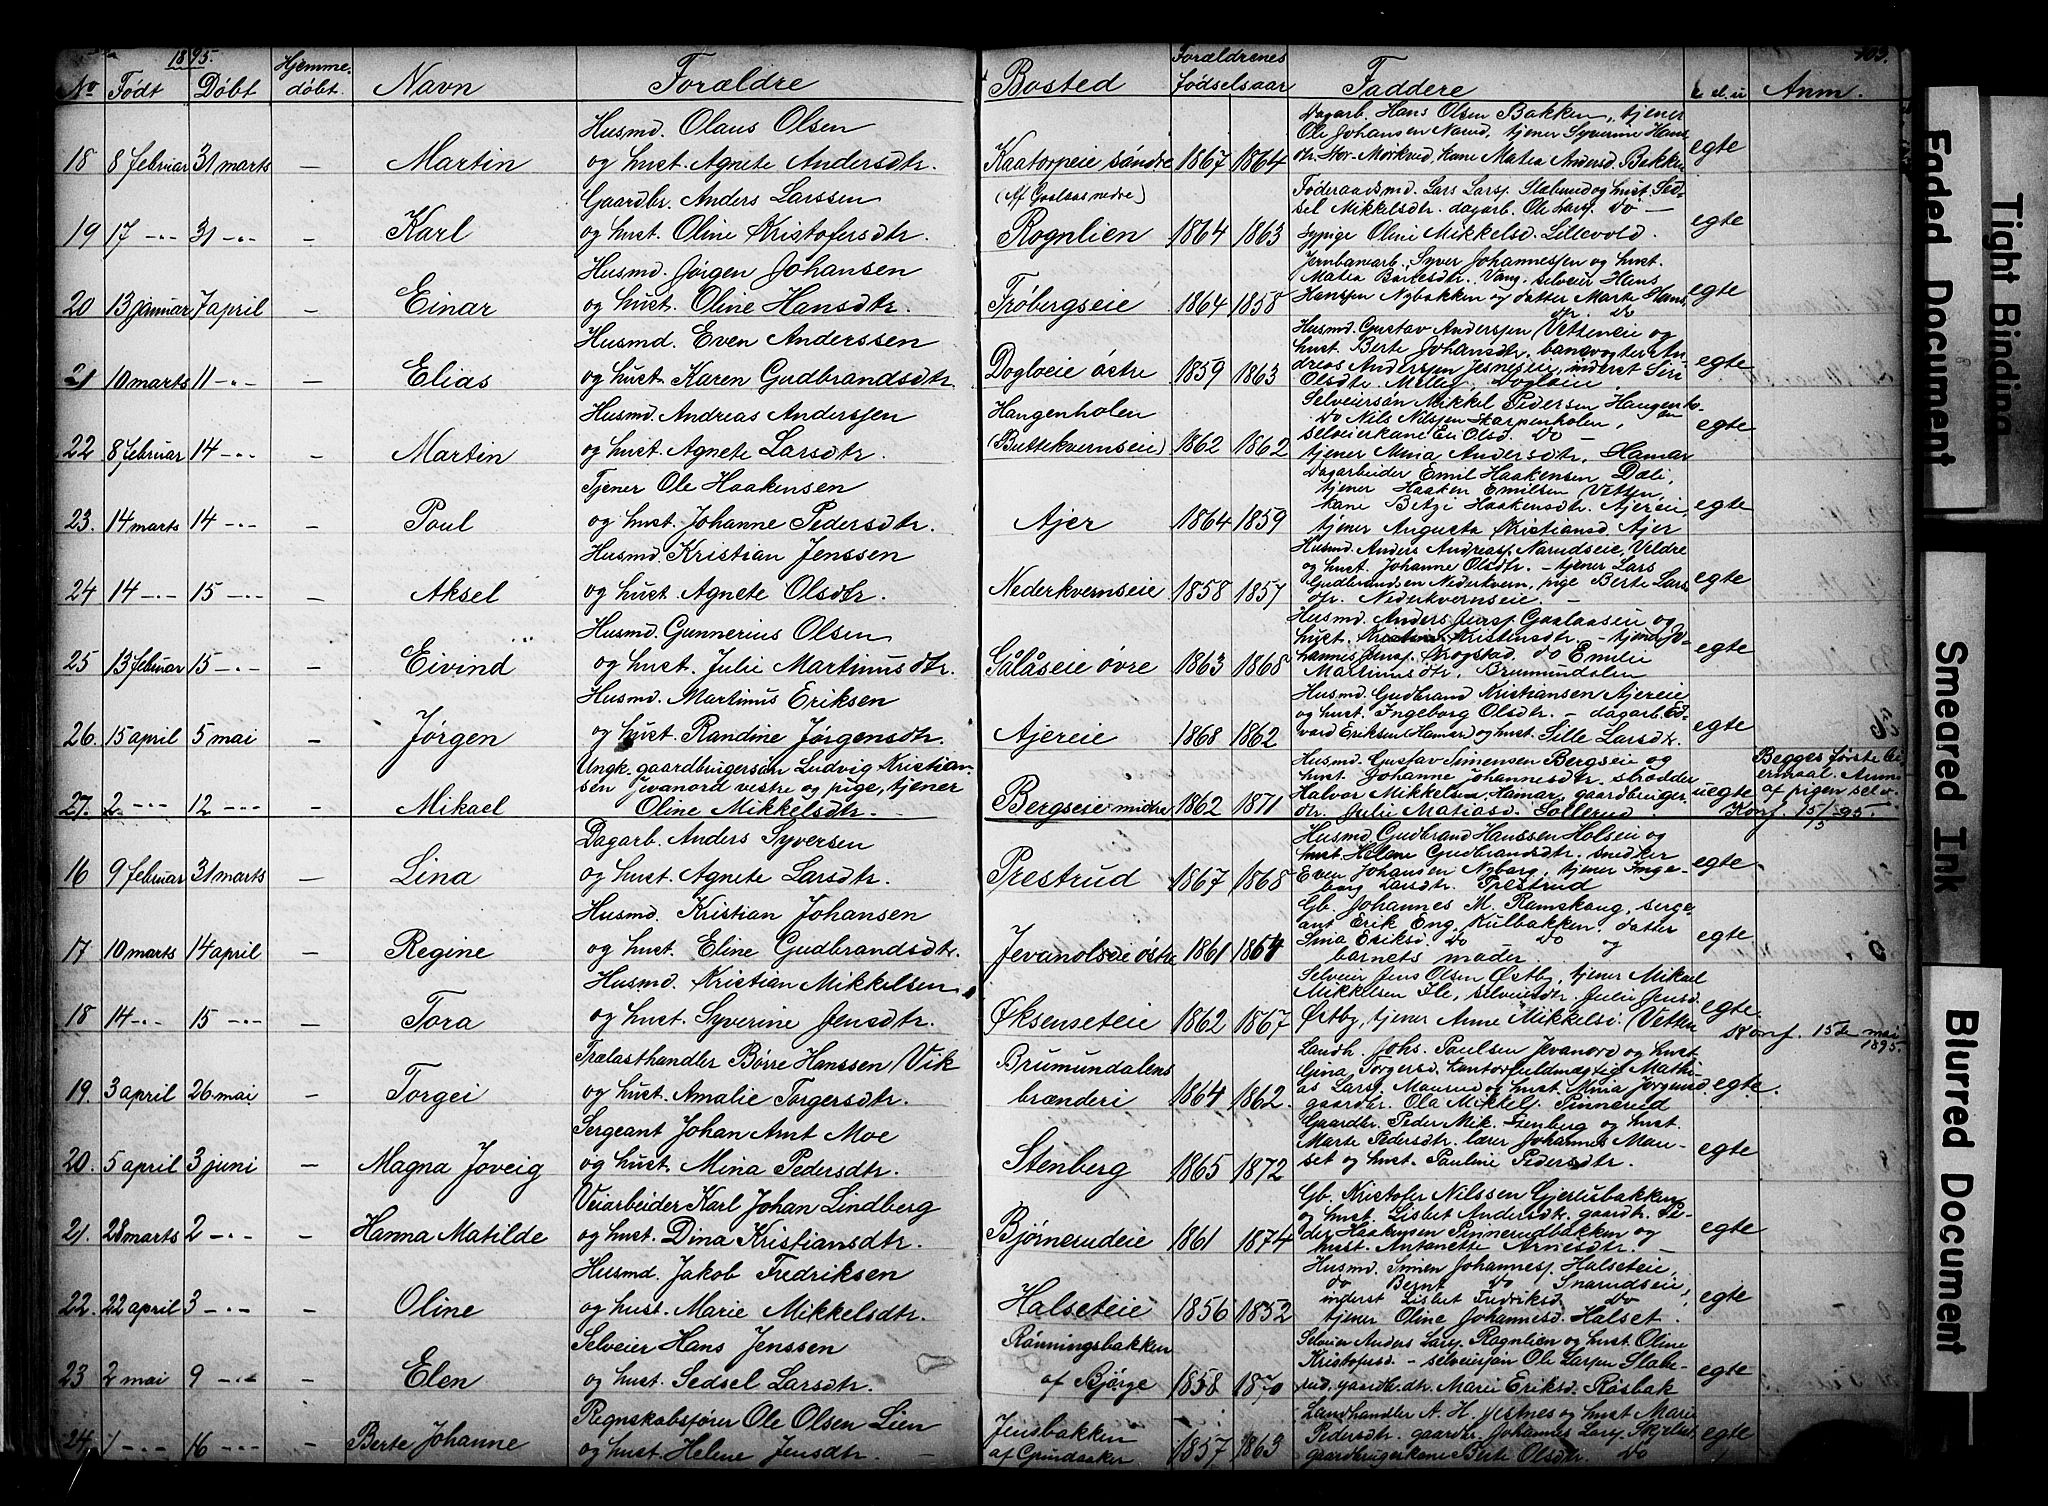 1895.
103.
No Født Døbt Hjemmedøbt. Navn Forældre Bosted Forældrenes Fødselsaar Faddere E el. u Anm.
18 8 februar 31 marts – Martin Husmd. Olaus Olsen og hust. Agnete Andersdtr. Kaatorpeie søndre 1867 1864 Dagarb. Hans Olsen Bakken, tjener Ole Johansen Narud, tjener Syverine Hansdtr. Stor-Mørkved, kone Matea Andersd. Bakken egte
19 17 –"– 31 –"– – Karl Gaardbr. Anders Larssen og hust. Oline Kristofersdtr. (Af Gaalaas nedre) Rognlien 1864 1863 Føderaadsmd. Lars Larsp. Slabrud og hust. Sedsel Mikkelsdtr. dagarb. Ole Larsp. do – sypige Oline Mikkelsd. Lillevold. egte
20 13 januar 7 april – Einar Husmd. Jørgen Johansen og hust. Oline Hansdtr. Frøbergseie 1864 1858 Jernbanearb. Syver Johannessen og hust. Matea Børresdtr. Vang, selveier Hans Hanssen Nybakken og datter Marte Hansdtr. do egte
21 10 marts 11 –"– – Elias Husmd. Even Anderssen og hust. Karen Gudbrandsdtr. Dogloeie østre 1859 1863 Husmd. Gustav Anderssen Vetteneie og hust. Berte Johansdtr. banevogter Andreas Anderssen Jesneseie, inderst Siri Olsdtr. Dogloeie. egte
22 8 februar 14 –"– – Martin Husmd. Andreas Anderssen og hust. Agnete Larsdtr. Haugenholen (Buttekvernseie) 1862 1862 Selveiersøn Mikkel Pedersen Haugen do Nils Nilssen Skarpenholen, selveierkone Eli Olsd. do – tjener Mina Andersdtr. Hamar egte
23. 14 marts 14 –"– – Poul Tjener Ole Haakensen og hust. Johanne Pedersdtr. Ajer 1864 1859 Dagarbeider Emil Haakensen Dæli, tjener Haaken Emilsen Vetten, kone Betzi Haakensdtr. Ajereie, tjener Augusta Kristiansd. Ajer egte
24 14 –"– 15 –"– – Aksel Husmd. Kristian Jenssen og hust. Agnete Olsdtr. Nederkvernseie 1858 1857 Husmd. Anders Andreasp. Narudseie, Veldre og hust. Johanne Olsdtr. – tjener Lars Gudbrandsen Nederkvern, pige Berte Larsdtr. Nederkvernseie – egte
25 13 februar 15 –"– – Eivind Husmd. Gunnerius Olsen og hust. Julie Martinusdtr. Gålåseie øvre 1863 1868 Husmd. Anders Jensp. Gaalaaseie og hust. Kristensdtr. – tjener Johannes Jensp. Krogstad do Emilie Martinusdtr. Brumundalen egte
26. 15 april 5 mai – Jørgen Husmd. Martinus Eriksen og hust. Randine Jørgensdtr. Ajereie 1868 1862 Husmd. Gudbrand Kristiansen Ajereie og hust. Ingeborg Olsdtr. – dagarb. Edvard Eriksen Hamar og hust. Sille Larsdtr. egte
27. 2 –"– 12 –"– – Mikael Ungk. gaardbrugersøn Ludvig Kristiansen Jevanord vestre og pige, tjener Oline Mikkelsdtr. Bergseie midtre 1862 1871 Husmd. Gustav Simensen Bergseie og hust. Johanne Johannesdtr. skrædder Halvor Mikkelsen Hamar, gaardbrugerdtr. Julie Matiasd. Sollerud. uegte Begges første leiermaal. Anm. af pigen selv. Konf. 15/5 95.
16 9 februar 31 marts – Lina Dagarb. Anders Syversen og hust. Agnete Larsdtr. Prestrud 1867 1868 Husmd. Gudbrand Hanssen Holseie og hust. Helene Gudbrandsdtr. snedker Even Johansen Nyborg, tjener Ingeborg Larsdtr. Prestrud egte
17 10 marts 14 april – Regine Husmd. Kristian Johansen og hust. Eline Gudbrandsdtr. Jevanolseie østre 1861 1864 Gb. Johannes M. Ramskoug, sergeant Erik Eng. Kulbakken. datter Lina Eriksd. do do og barnets moder. egte
18 14 –"– 15 –"– – Tora Husmd. Kristian Mikkelsen og hust. Syverine Jensdtr. Øksenseteie 1862 1867 Selveier Jens Olsen Østby, tjener Mikael Mikkelsen Ile, selveierdtr. Julie Jensd. Østby, tjener Anne Mikkelsd. Vetten egte. Konf. 15de mai 1895.
19. 3 april 26 mai – Torgei Trælasthandler Børre Hanssen Vik og hust. Amalie Torgersdtr. Brumundalens brænderi 1864 1862. Landh. Johs. Paulsen Jevanord og hust. Gina Torgersd. kontorfuldmægtig Mathias Larsp. Maurud og hust. Mina Jørgensd. gaardbr. Ola Mikkelp. Pinnerud egte.
20. 5 april 3 juni – Magna Joveig Sergeant Johan Arnt Moe og hust. Mina Pedersdtr. Stenberg 1865 1872 Gaardbr. Peder Mik. Stenberg og hust. Marte Pedersdtr. lærer Johannes Maurset og hust. Pauline Pedersdtr. egte
21. 28 marts 2 –"– – Hanna Matilde Veiarbeider Karl Johan Lindberg og hust. Dina Kristiansdtr. Bjørnerudeie 1861 1874 Gb. Kristofer Nilssen Gjerlusbakken og hust. Lisbet Andersdtr. gaardbr. Peder Haakensen Pinnerudbakken og hust. Antonette Arnesdtr. – egte
22. 22 april 3 –"– – Oline Husmd. Jakob Fredriksen og hust. Marie Mikkelsdtr. Halseteie 1856 1852 Husmd. Simen Johannesp. Halseteie, do Bernt do Snarudseie, inderst Lisbet Fredriksd. do tjener Oline Johannesd. Halset. egte
23 2 mai 9 –"– – Elen Selveier Hans Jenssen og hust. Sedsel Larsdtr. Rønningsbakken af Bjørge 1858 1870 Selveier Anders Larsp. Rognlien og hust. Oline Kristofersd. – selveiersøn Ole Larsen Slaberud, gaardb. dtr. Marie Eriksd. Røsbak egte
24. 1 –"– 16 –"– – Berte Johanne Regnskabsfører Ole Olsen Lien og hust. Helene Jensdtr. – Jensbakken af Grundaaker 1857 1863 Landhandler A. H. Jesnes og hust. Marie Pedersdtr. gaardbr. Johannes Larsp. Skjelset gaardbrugerkone Berte Olsdtr. do egte
Faded Document
Tight Binding
Smeared Ink
Blurred Document